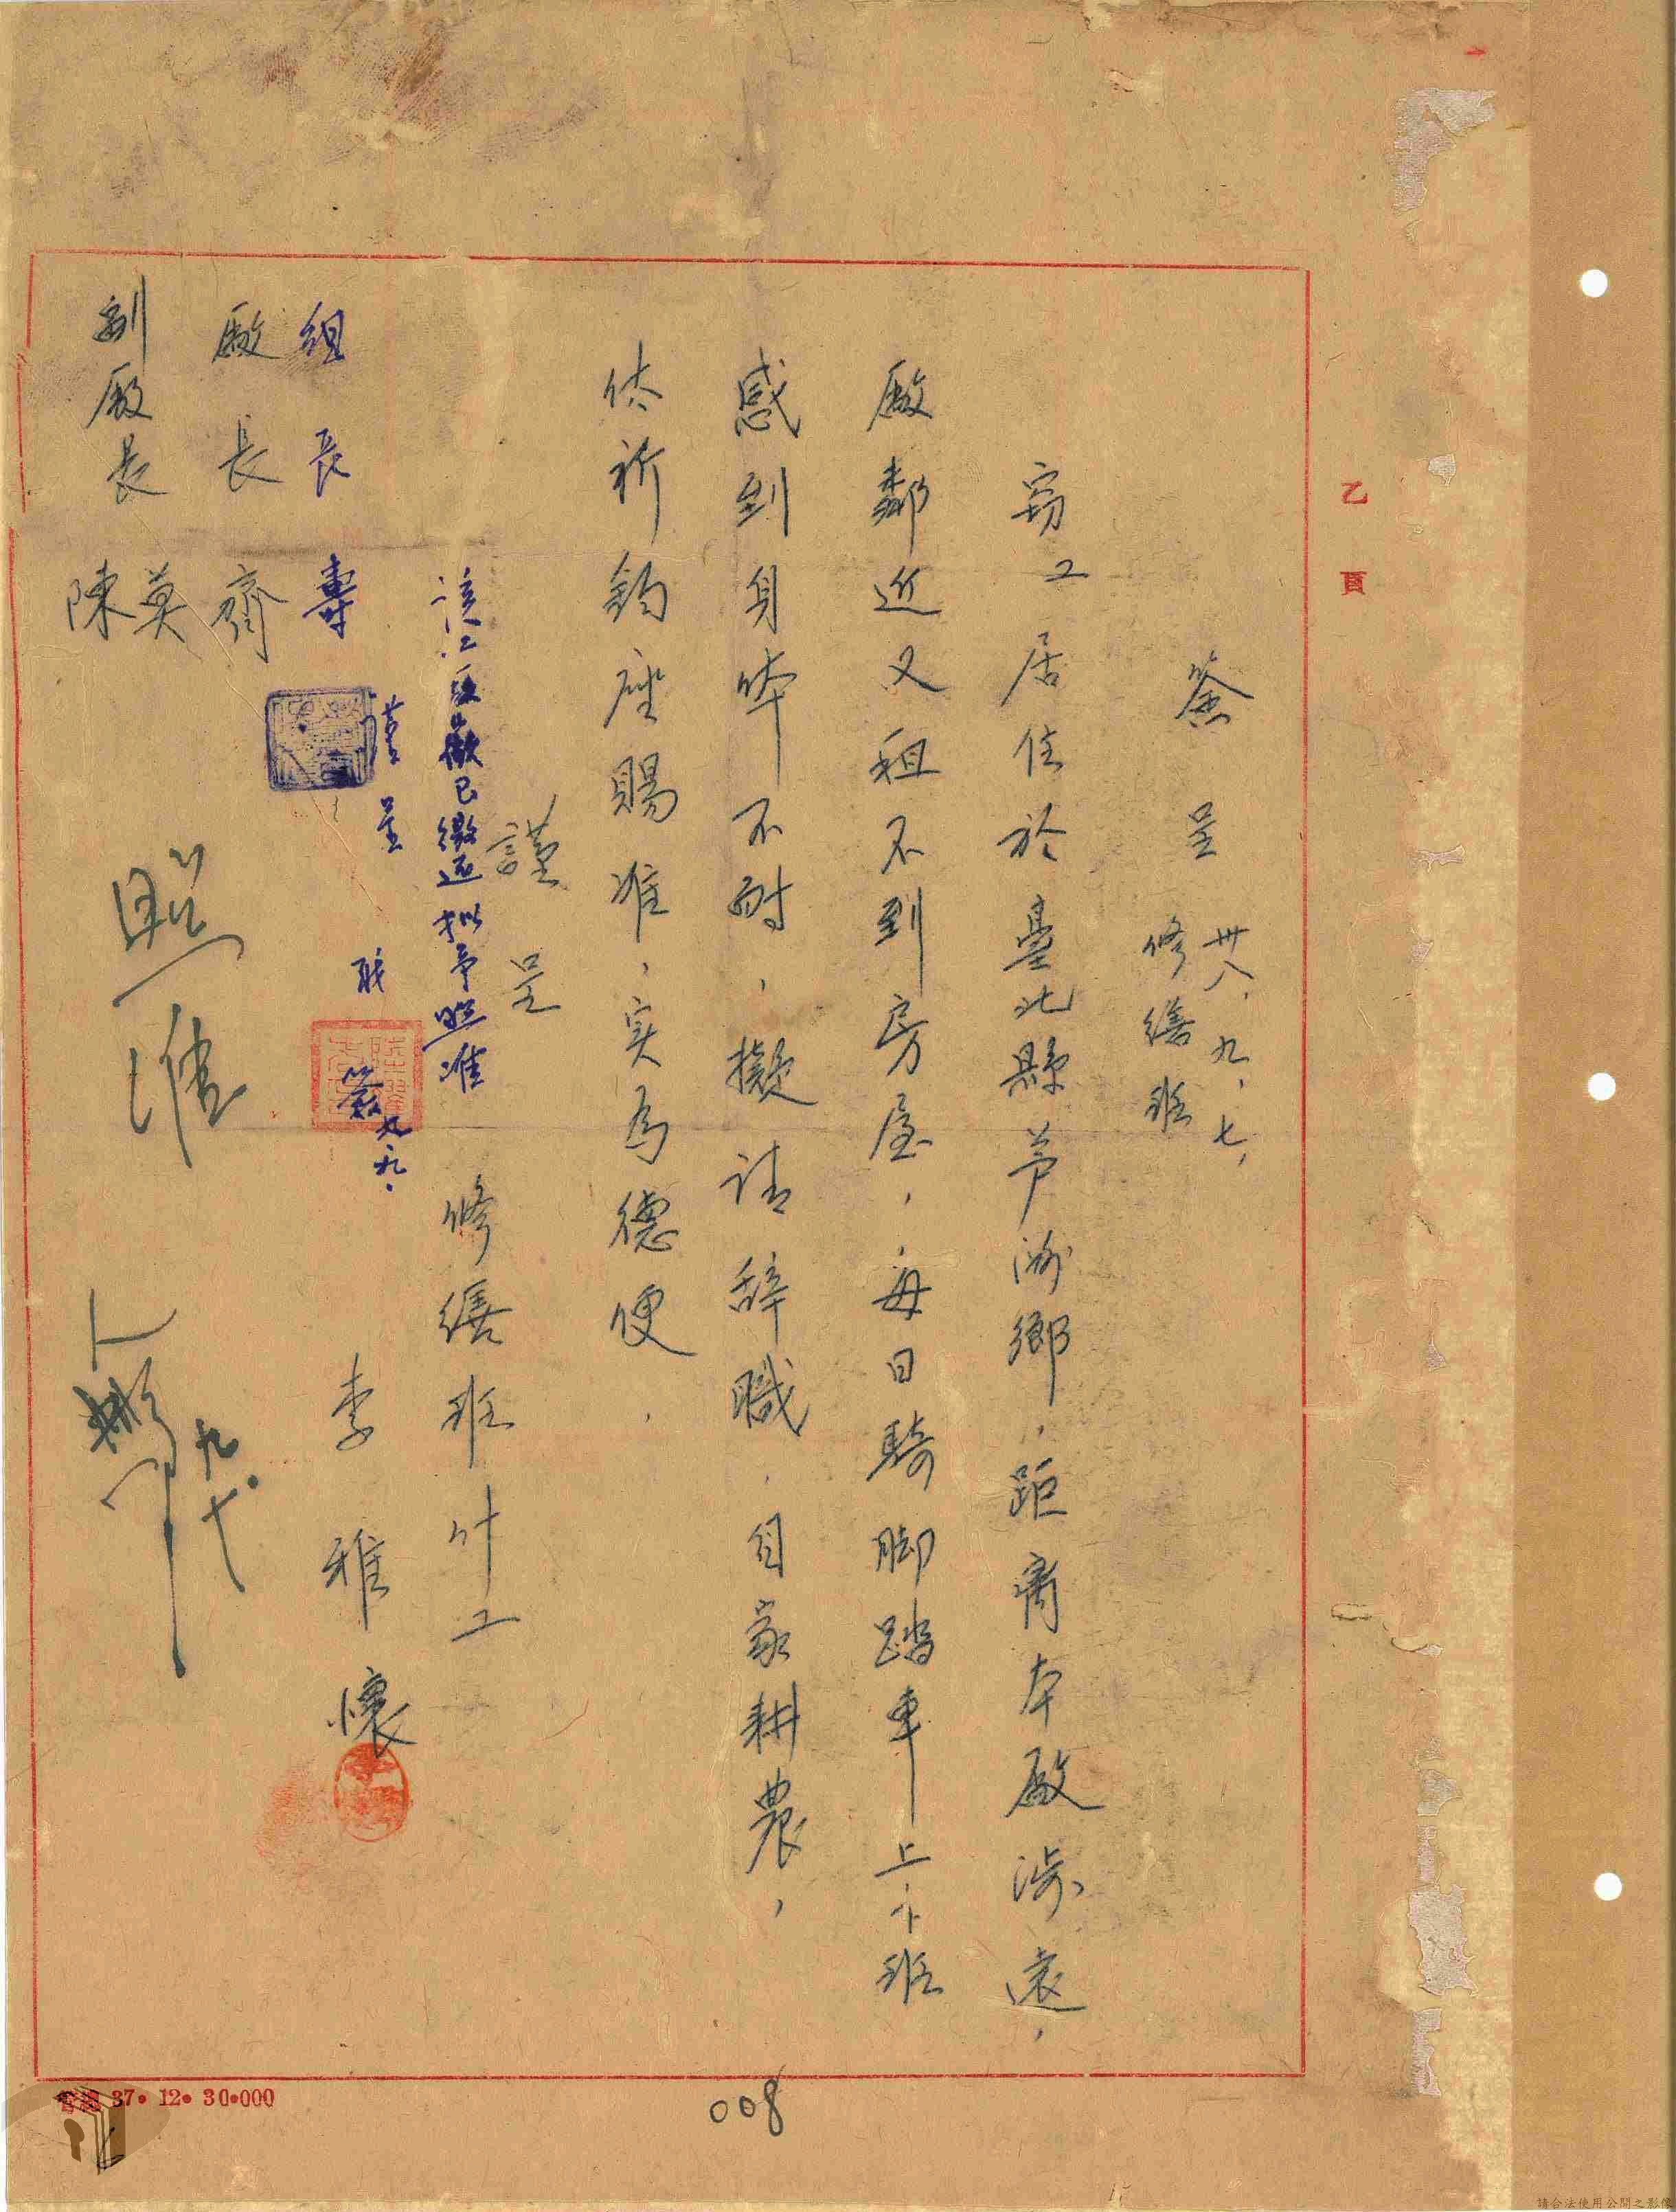 乙頁
簽呈 卅八．九．七，
修繕班
竊工居住於臺北縣芦洲鄉，距离本廠涉遠，
廠鄰近又租不到房屋，每日騎脚踏車上下班
感到身体不耐，擬請辞職，自家耕農，
伏祈鈞座賜准，实為德便．
謹呈
該工厰徽已繳还拟予照准
修繕班什工
謹呈
職 簽 九．九．
李雅懷
組長 壽
廠長 齊
副廠長 莫
陳
照准
九．十
管總 37．12．30．000
008
請合法使用公開之影像